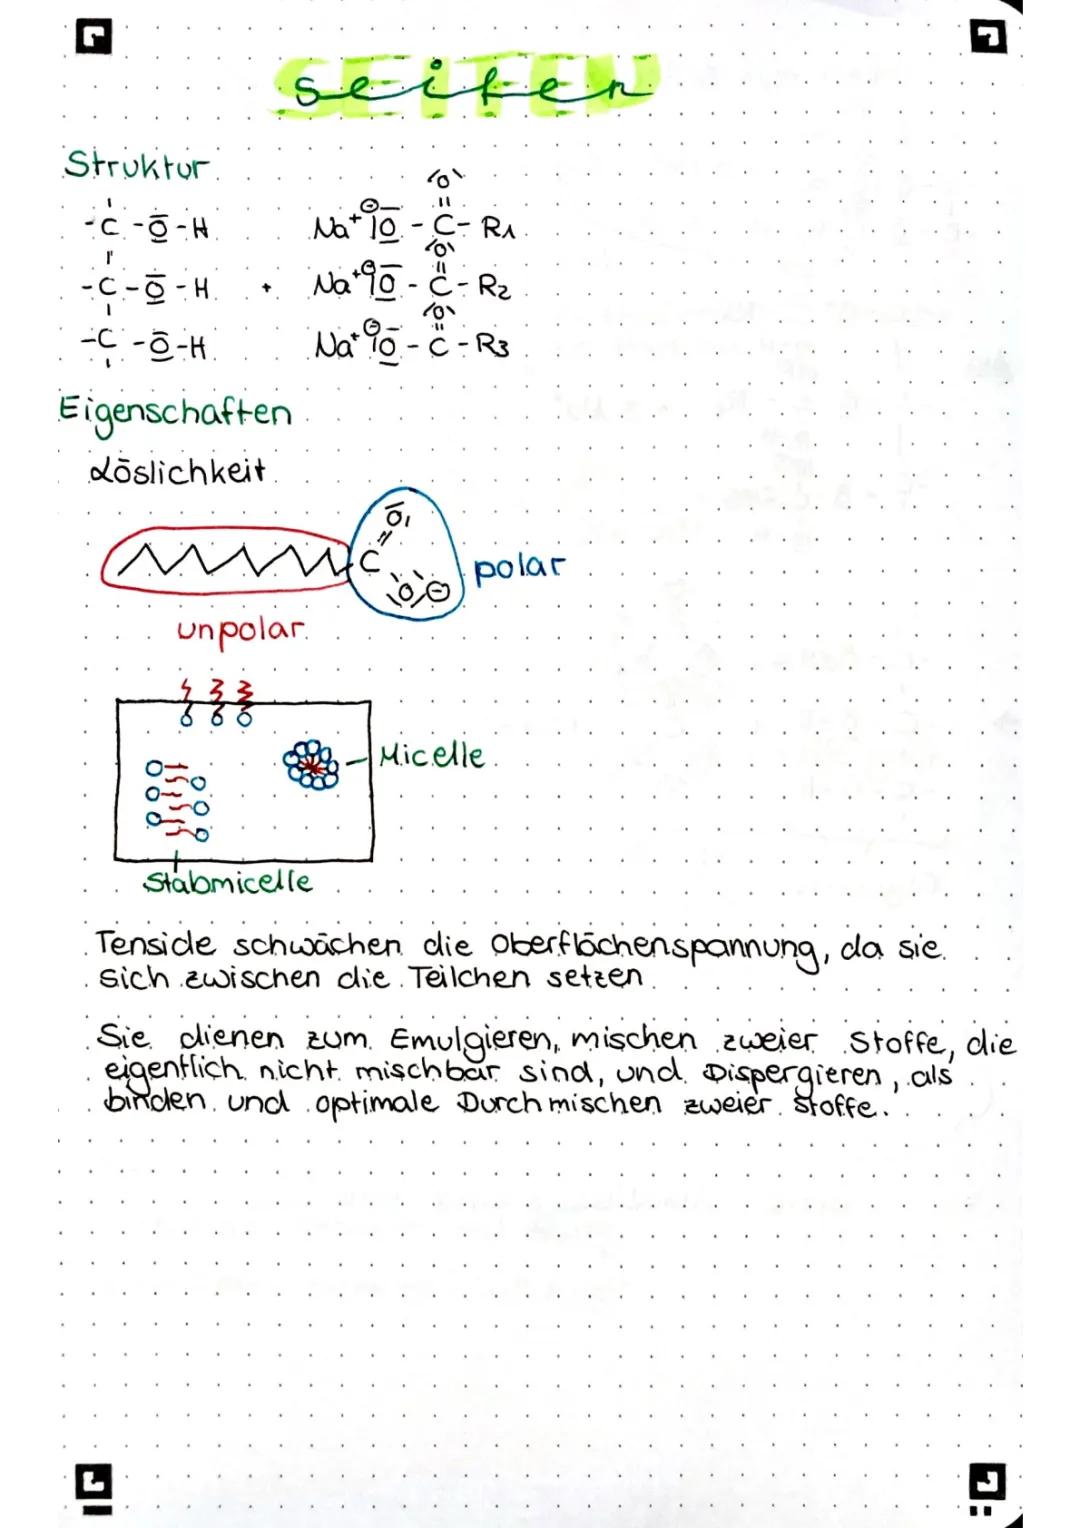 Seifen
Struktur
-C-O̲̅-H   Na⁺ ⊖|O̲̅-C-R1
-C-O̲̅-H + Na⁺ ⊖|O̲̅-C-R2
-C-O̲̅-H   Na⁺ ⊖|O̲̅-C-R3
Eigenschaften
Löslichkeit
polar
unpolar
Micelle
Stabmicelle
Tenside schwächen die Oberflächenspannung, da sie
sich zwischen die Teilchen setzen
Sie dienen zum Emulgieren, mischen zweier Stoffe, die
eigentlich nicht mischbar sind, und Dispergieren, als
binden und optimale Durchmischen zweier Stoffe.